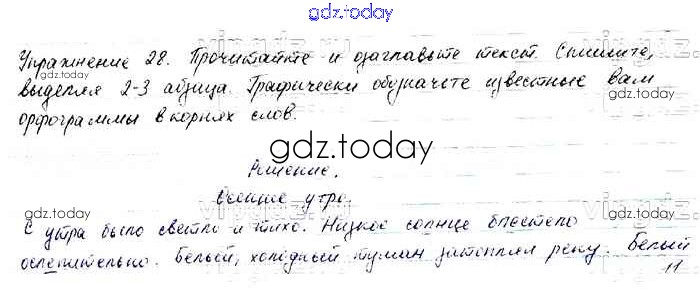 gdz.today
Упражнение 28. Прочитайте и озаглавьте текст. Спишите,
выделяя 2-3 абзаца. Графически обозначьте известные вам
орфограммы в корнях слов.
gdz.today
Решение.
Осеннее утро.
gdz.today
С утра было светло и тихо. Низкое солнце блестело
ослепительно. Белый, холодный туман затоплял реку. Белый
gdz.today
11